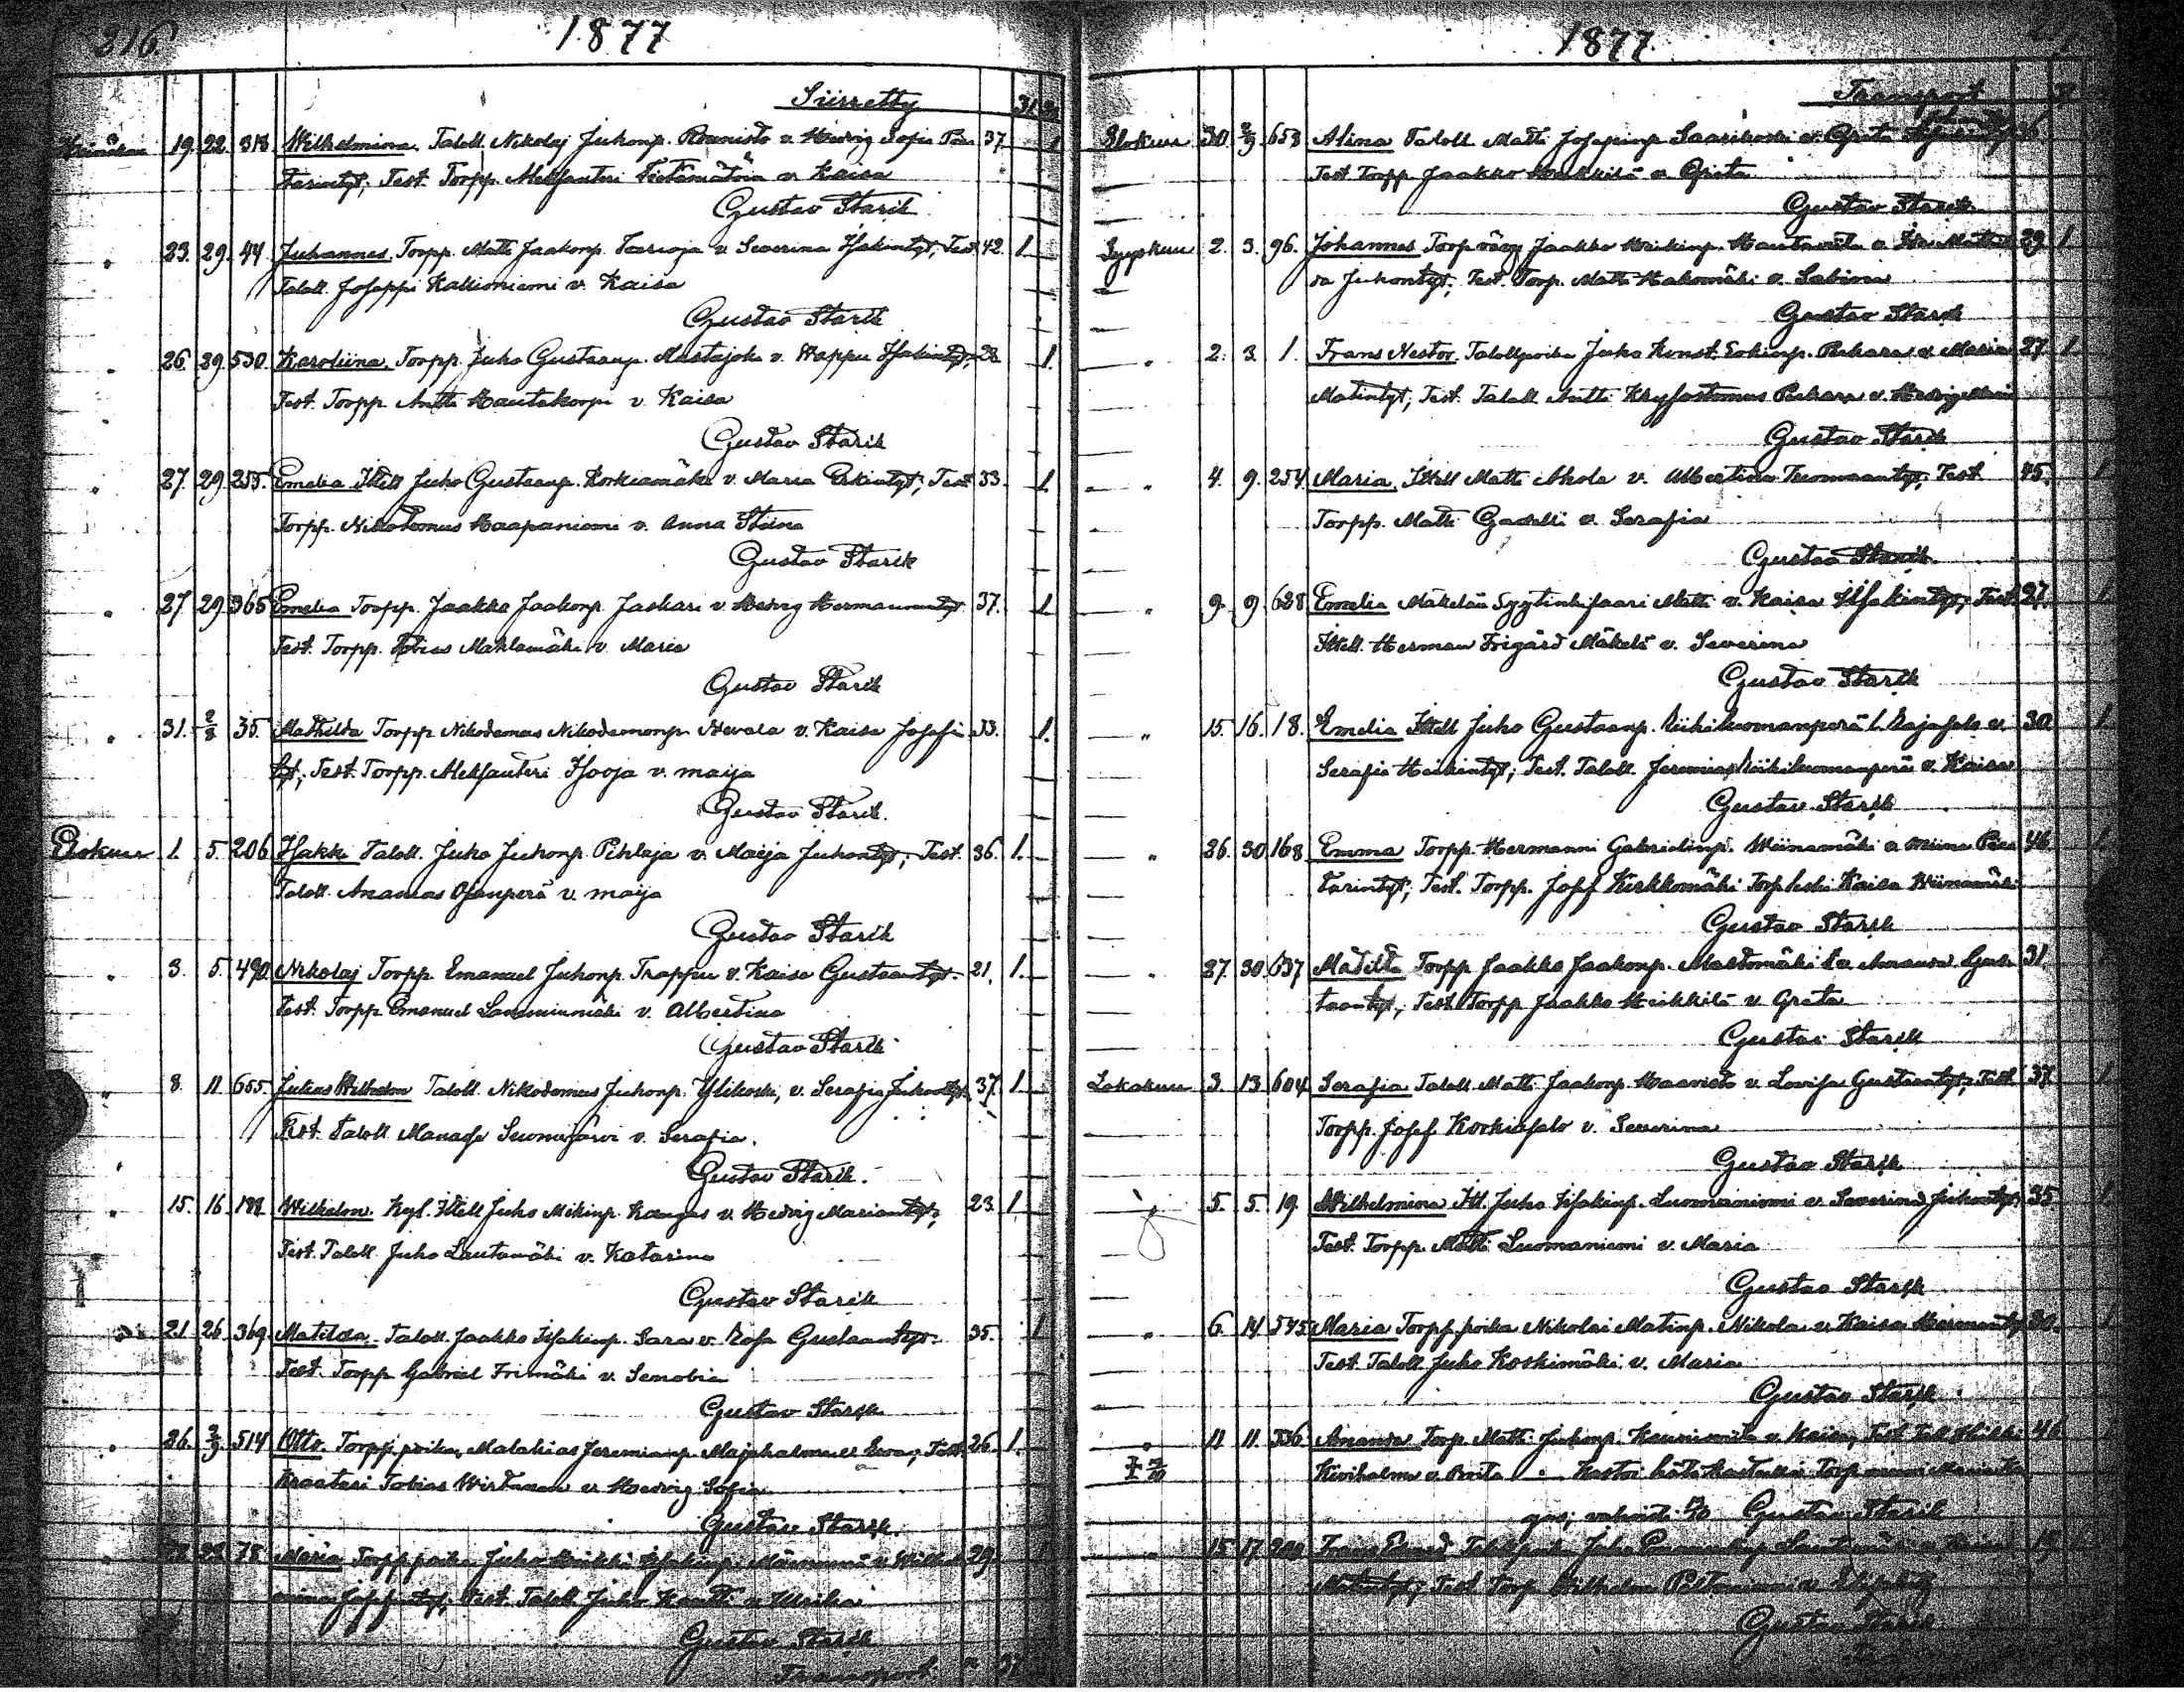 216.
1877
Siirretty 31.
Heinäkuu 19. 22. 318 Wilhelmina. Taloll. Nikolaj Juhonp. Rounisto v. Hedvig Sofia 37. 1
tarintyt; Test. Torpp. Aleksanteri v. Kaisa
Gustav Starik
" 23. 29. 44. Juhannes. Torpp. Matti Jaakonp. v. Severina Isakintyt; Test. 42. 1.
Taloll. Joseppi Kallioniemi v. Kaisa
Gustav Starik
" 26. 29. 530. Karoliina. Torpp. Juho Gustaanp. Mustajoki v. Wappu Isakintyt; 1.
Test. Torpp. Antti Hautakorpi v. Kaisa
Gustav Starik
" 27. 29. 255. Emelia. Itell. Juho Gustaanp. Korkiamäki v. Maria Erkintyt; Test. 33. 1.
Torpp. Nikodemus Haapaniemi v. Anna Stiina
Gustav Starik
" 27. 29. 365 Emelia Torpp. Jaakko Jaakonp. Jaskari v. Hedvig Hermannintyt. 37. 1
Test. Torpp. Tobias Mahlamäki v. Maria
Gustav Starik
" 31. 2/8 35. Mathilda Torpp. Nikodemus Nikodemonp. Nevala v. Kaisa Josefin 33. 1.
tyt; Test. Torpp. Aleksanteri Isooja v. maija
Gustav Starik.
Elokuu 1. 5. 206 Isakki Taloll. Juho Juhonp. Pihlaja v. Maija Juhontyt; Test. 36. 1.
Taloll. Ananias Ojanperä v. maija
Gustav Starik
" 3. 5. 490. Nikolaj Torpp. Emanuel Juhonp. Trappu v. Kaisa Gustaantyt. 21. 1.
Test. Torpp. Emanuel Lamminmäki v. Albertina
Gustav Starik
" 8. 11. 655. Julius Wilhelm Taloll. Nikodemus Juhonp. Ylikoski, v. Serafia Juhontyt. 37. 1
Test. Taloll. Manasse Suomijärvi v. Serafia.
Gustav Starik.
" 15. 16. 188. Wilhelm. Kyl. Itell. Juho Mikinp. Kangas v. Hedvig Mariantyt; 23. 1.
Test. Taloll. Juho Lautamäki v. Katarina
Gustav Starik
" 21. 26. 369. Matilda. Taloll. Jaakko Isakinp. Sara v. Kosa Gustaantyt. 35. 1
Test. Torpp. Gabriel Frimäki v. Senobia
Gustav Starik
" 26. 2/9. 514 Otto. Torpp.poika, Malakias Jeremianp. Majahalme v. Eeva; Test. 26. 1.
Kraatari Tobias Wirtanen v. Hedvig Sofia
Gustav Starik.
29. 78. Maria Torpp.poika Juho Heikki Isakinp. v. Wilhel 29.
mina tyt; Test. Taloll. Juho Kantti v. Ulrika
Gustav Starik
Transport
1877.
Transport
Elokuu 30. 2/9 653 Alina Taloll. Matti Josepinp. Saarikoski v. Greta
Test. Torpp. Jaakko Heikkilä v. Greta
Gustav Starik
Syyskuu 2. 3. 96. Johannes Torp.vävy Jaakko Heikinp. v. 29. 1
Juhontyt; Test. Torp. Matti Hakomäki v. Sabina
Gustav Starik
" 2. 3. 1. Frans Nestor. Taloll.poika Juho Konst. Erkinp. Pekara v. Maria 27. 1.
Matintyt; Test. Taloll. Antti Krysostomus Pekara v. Hedvig Maria
Gustav Starik
" 4. 9. 254. Maria. Itell. Matti Ahola v. Albertina Tuomaantyt; Test. 45. 1
Torpp. Matti Gadelli v. Serafia
Gustav Starik.
" 9. 9. 628 Emelia Mäkelän Syytinkisaari Matti v. Kaisa Isakintyt; Test. 27. 1.
Itell. Herman Frigård Mäkelä v. Severina
Gustav Starik
" 15. 16. 18. Emelia Itell. Juho Gustaanp. Riihiluomanperä l. Rajasalo v. 30. 1.
Serafia Heikintyt; Test. Taloll. Jeremias Riihiluomanperä v. Kaisa
Gustav Starik
" 26. 30. 168 Emma Torpp. Hermanni Gabrielinp. Wiinamäki v. Miina 46. 1.
tarintyt; Test. Torpp. Josef Kirkkomäki Torp.leski Kaisa Wiinamäki
Gustav Starik
" 27. 30. 637 Matilda Torpp. Jaakko Jaakonp. v. Amanda Gus 31.
taantyt; Test. Torpp. Jaakko Heikkilä v. Greta
Gustav Starik
Lokakuu 3. 13. 604 Serafia Taloll. Matti Jaakonp. Haavisto v. Lovisa Gustaantyt; Test. 37. 1
Torpp. Josef Korkiasalo v. Severina
Gustav Starik
" 5. 5. 19. Wilhelmina Itl. Juho Isakinp. Luomaniemi v. Severina Juhontyt; 35 1
Test. Torpp. Matti Luomaniemi v. Maria
Gustav Starik
" 6. 14. 545 Maria Torpp.poika Nikolai Matinp. Nikola v. Kaisa 30. 1
Test. Taloll. Juho Koskimäki v. Maria
Gustav Starik
" 11. 11. 336 Amanda Torp. Matti Juhonp. v. Kaisa; Test. Tall. Heikki 46
Kiviholma v. hätä Torp. Maria
Gustav Starik
" 15. 17. Frans Edvard Juho v.
Matintyt; Test. Torp. Wilhelm Peltoniemi v.
Gustav Starik